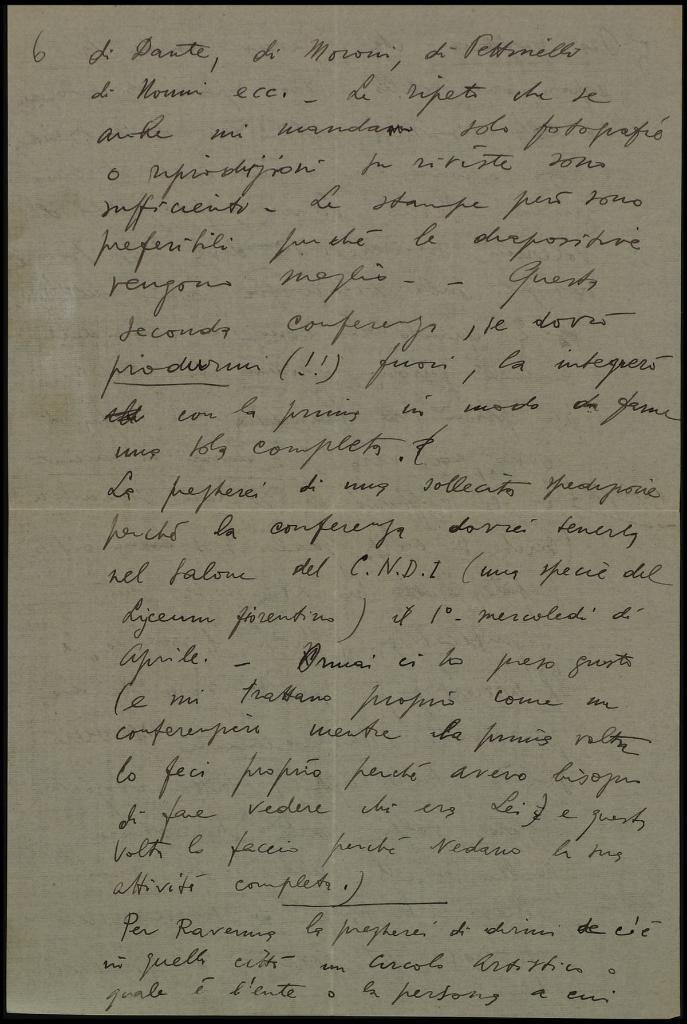 6 di Dante, di Moroni, di Pettinello
di Nonni ecc. – Le ripeto che se
anche mi mandano solo fotografie
o riproduzioni su riviste sono
sufficienti – Le stampe però sono
preferibili perché le diapositive
vengono meglio – – Questa
seconda conferenza, se dovrò
produrmi (!!) fuori, la integrerò
con la prima in modo da farne
una sola completa.
La pregherei di una sollecita spedizione
perché la conferenza dovrei tenerla
nel Salone del C.N.D.I (una specie del
Lyceum fiorentino) il 1° mercoledì di
Aprile. – Ormai ci ho preso gusto
(e mi trattano proprio come un
conferenziere mentre la prima volta
lo feci proprio perché avevo bisogno
di fare vedere chi era Lei e questa
volta lo faccio perché vedano la sua
attività completa.)
Per Ravenna la pregherei di dirmi se c'è
in quella città un circolo artistico o
quale è l'ente o la persona a cui